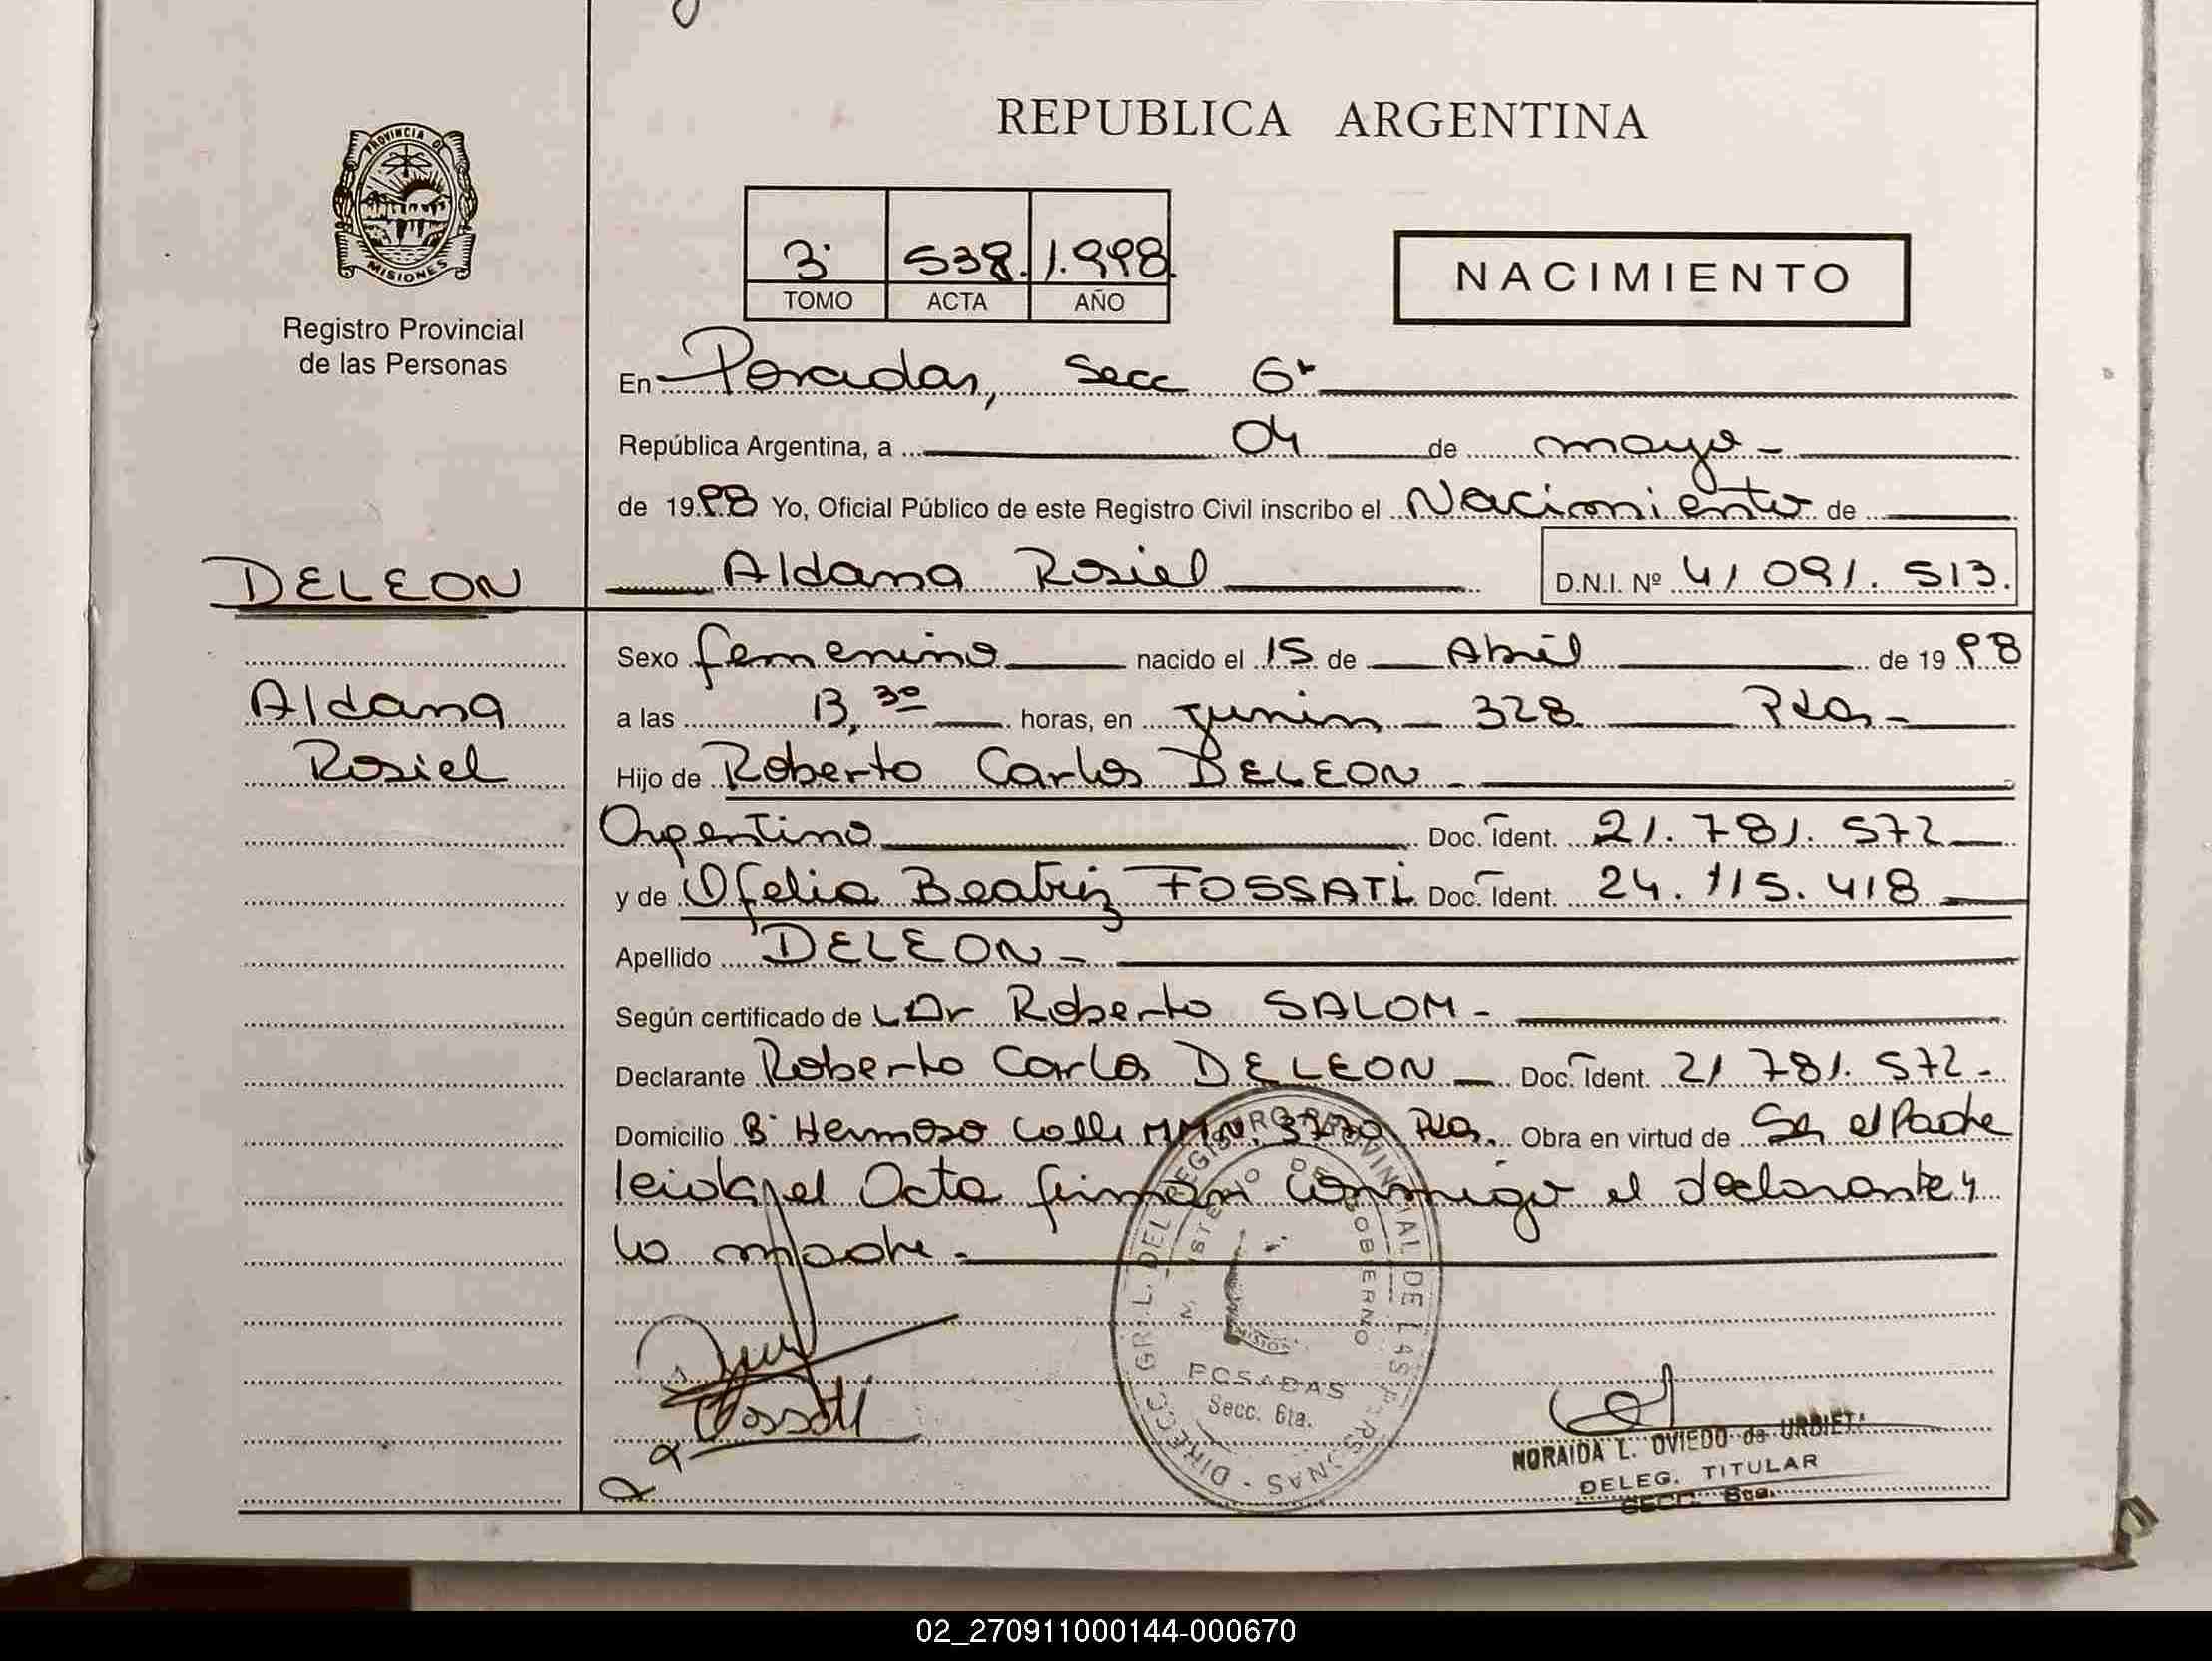 REPUBLICA ARGENTINA
PROVINCIA DE MISIONES
Registro Provincial
de las Personas
3° 538. 1.998.
TOMO ACTA AÑO
NACIMIENTO
En Posadas, Secc 6ª
República Argentina, a 04 de mayo -
de 1998 Yo, Oficial Público de este Registro Civil inscribo el Nacimiento de
DELEON
Aldana Rosiel D.N.I. Nº 41 091. 513.
Aldana
Rosiel
Sexo femenino nacido el 15 de Abril de 1998
a las 13,30 horas, en Junin - 328 Pdas -
Hijo de Roberto Carlos DELEON -
Argentino Doc. Ident. 21. 781. 572
y de Ofelia Beatriz FOSSATI Doc. Ident. 24. 115. 418
Apellido DELEON -
Según certificado de Dr Roberto SALOM -
Declarante Roberto Carlos DELEON Doc. Ident. 21 781. 572 -
Domicilio Bº Hermoso Calle 3770 Pdas. Obra en virtud de Ser el Padre
leida el Acta firman conmigo el declarante y
la madre. -
Fossati
DIRECC. GRL. DEL REGISTRO PROVINCIAL DE LAS PERSONAS
MINISTERIO DE GOBIERNO
MISIONES
POSADAS
Secc. 6ta.
NORAIDA L. OVIEDO de URBIETA
DELEG. TITULAR
SECC. 6ta.
02_270911000144-000670